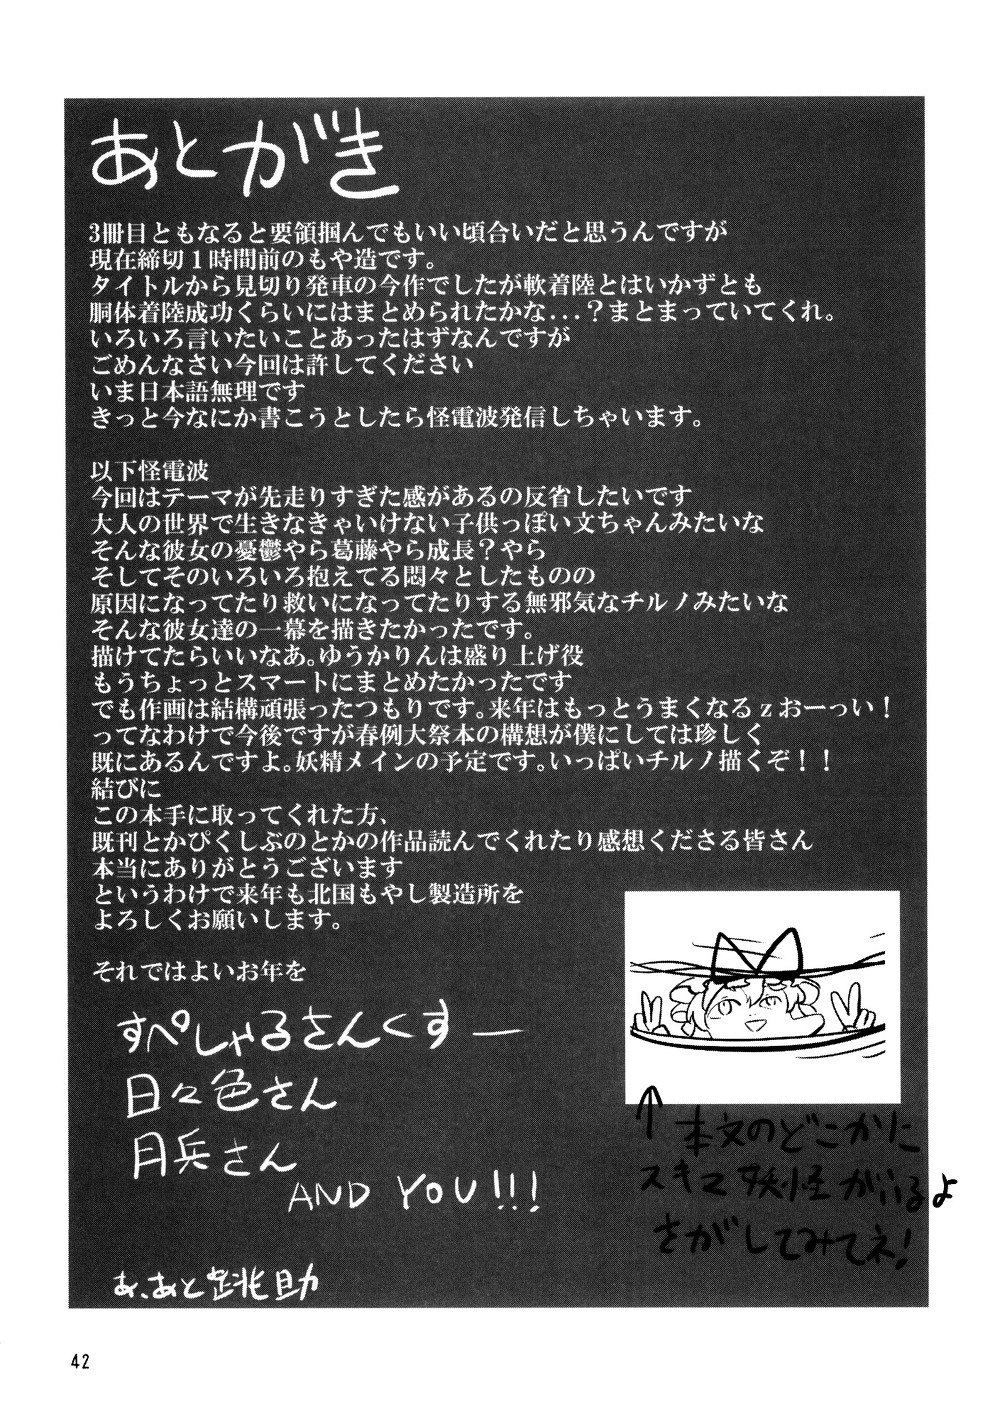 あとがき
3冊目ともなると要領掴んでもいい頃合いだと思うんですが
現在締切１時間前のもや造です。
タイトルから見切り発車の今作でしたが軟着陸とはいかずとも
胴体着陸成功くらいにはまとめられたかな...？まとまっていてくれ。
いろいろ言いたいことあったはずなんですが
ごめんなさい今回は許してください
いま日本語無理です
きっと今なにか書こうとしたら怪電波発信しちゃいます。
以下怪電波
今回はテーマが先走りすぎた感があるの反省したいです
大人の世界で生きなきゃいけない子供っぽい文ちゃんみたいな
そんな彼女の憂鬱やら葛藤やら成長？やら
そしてそのいろいろ抱えてる悶々としたものの
原因になってたり救いになってたりする無邪気なチルノみたいな
そんな彼女達の一幕を描きたかったです。
描けてたらいいなあ。ゆうかりんは盛り上げ役
もうちょっとスマートにまとめたかったです
でも作画は結構頑張ったつもりです。来年はもっとうまくなるｚおーっい！
ってなわけで今後ですが春例大祭本の構想が僕にしては珍しく
既にあるんですよ。妖精メインの予定です。いっぱいチルノ描くぞ！！
結びに
この本手に取ってくれた方、
既刊とかぴくしぶのとかの作品読んでくれたり感想くださる皆さん
本当にありがとうございます
というわけで来年も北国もやし製造所を
よろしくお願いします。
それではよいお年を
すぺしゃるさんくすー
日々色さん
月兵さん
AND YOU!!!
あ、あと跳助
↑本文のどこかに
スキマ妖怪がいるよ
さがしてみてネ!
42